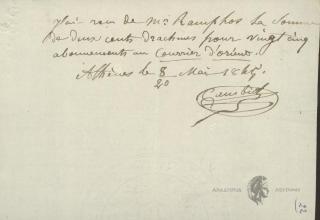 J'ai reçu de Mr Ramphos la somme
de deux cents drachmes pour vingt cinq
abonnements au Courrier d'orient.
Athènes le 8/20 Mai 1865.